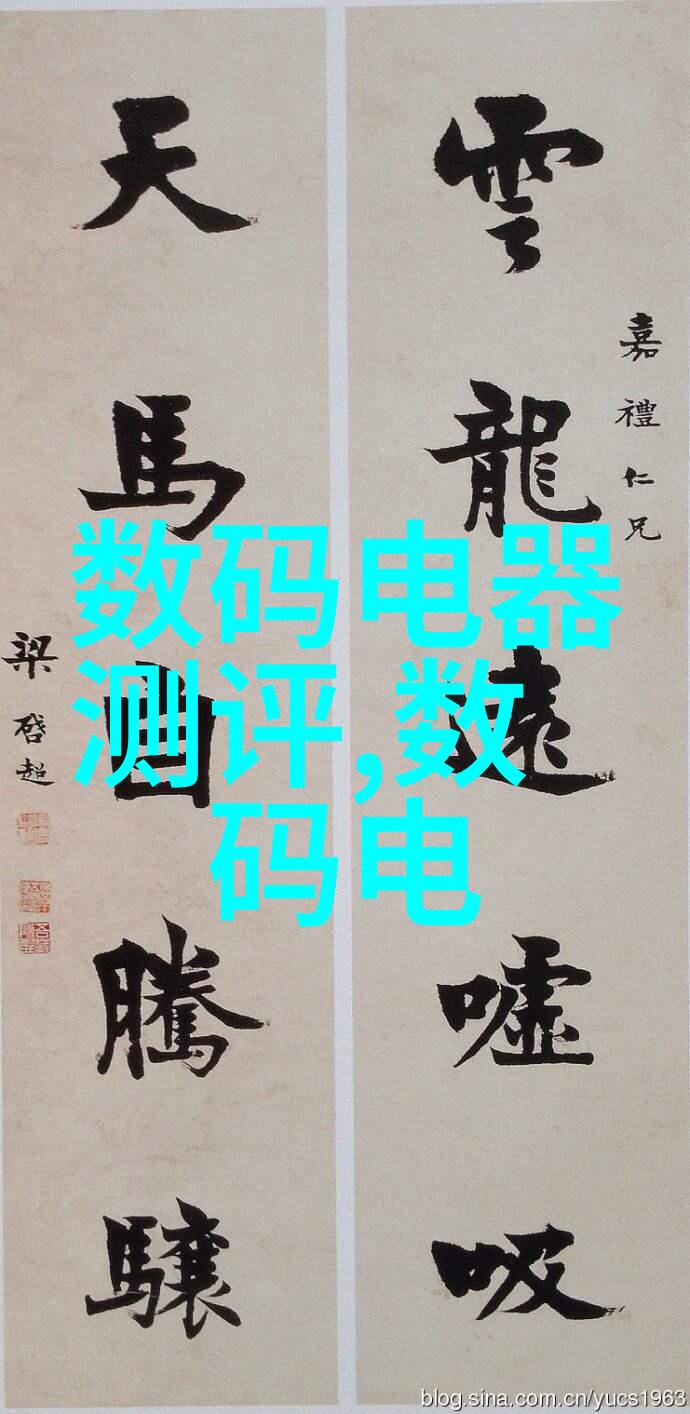 雲龍遠噓吸
嘉禮仁兄
天馬騰驤
梁啓超
数码电器
测评,数
码电
blog.sina.com.cn/yucs1963